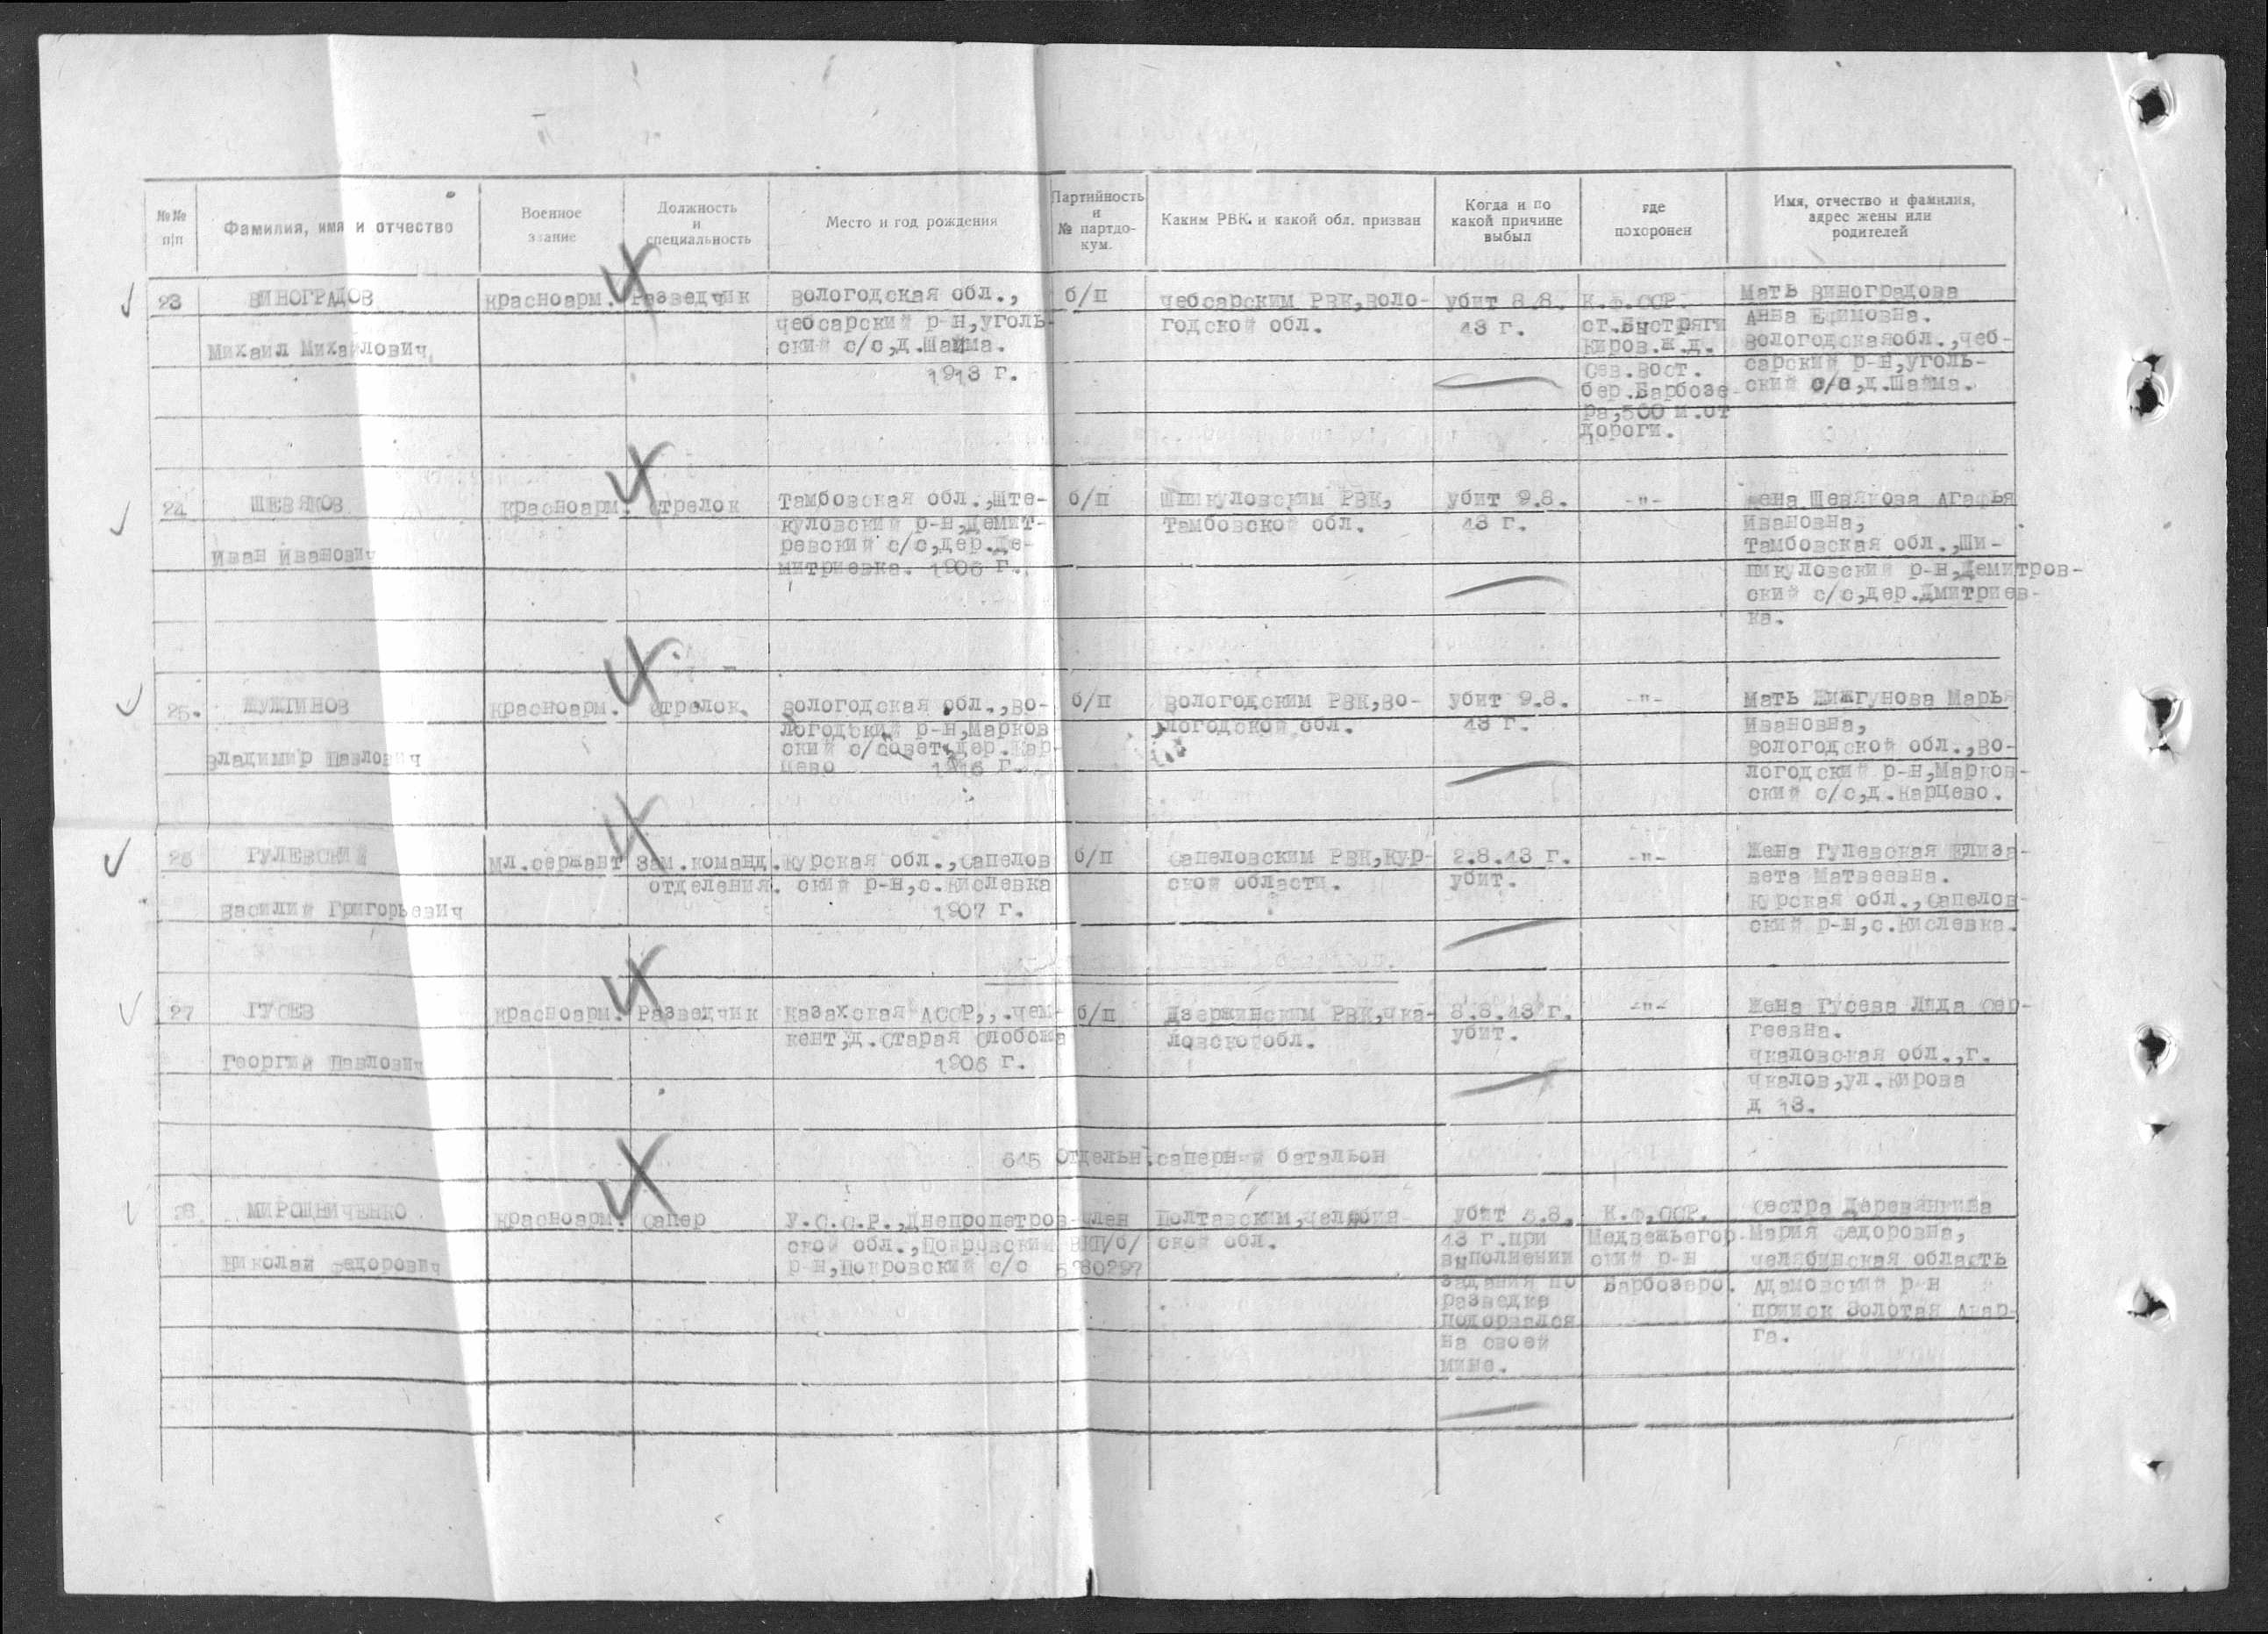 №№ п/п
Фамилия, имя и отчество
Военное звание
Должность и специальность
Место и год рождения
Партийность и № партдокум.
Каким РВК. и какой обл. призван
Когда и по какой причине выбыл
где похоронен
Имя, отчество и фамилия, адрес жены или родителей
23
ВИНОГРАДОВ
Михаил Михайлович
красноарм.
Разведчик
Вологодская обл.,
чебсарский р-н,уголь-
ский с/с,д.Шайма.
1913 г.
б/п
чебсарским РВК,Воло-
годской обл.
убит 8.8.
43 г.
К.Ф.ССР.
ст.Быстряги
Киров.ж.д.
Сев.Вост.
бер.Барбозе-
ра,500 м.от
дороги.
Мать Виноградова
Анна Ефимовна.
Вологодскаяобл.,чеб-
сарский р-н,уголь-
ский с/с,д.Шайма.
24
ШЕВЯКОВ
Иван Иванович
красноарм.
Стрелок
Тамбовская обл.,Ште-
куловский р-н,Демит-
ревский с/с,дер.Де-
митриевка. 1906 г.
б/п
Шпикуловским РВК,
Тамбовской обл.
убит 9.8.
43 г.
-"-
Жена Шевякова Агафья
Ивановна,
Тамбовская обл.,Ши-
пикуловский р-н,Демитров-
ский с/с,дер.Дмитриев-
ка.
25.
ЖУЖГИНОВ
Владимир Павлович
красноарм.
Стрелок.
Вологодская обл.,Во-
логодский р-н,Марков
ский с/совет,дер.Кар-
цево 1916 г.
б/п
Вологодским РВК,Во-
логодской обл.
убит 9.8.
43 г.
-"-
Мать Жижгунова Марья
Ивановна,
Вологодской обл.,Во-
логодский р-н,Марков-
ский с/с,д.Карцево.
26
ГУЛЕВСКИЙ
Василий Григорьевич
мл.сержант
Зам.команд.
отделения.
Курская обл.,Сапелов
ский р-н,с.Кислевка
1907 г.
б/п
Сапеловским РВК,Кур-
ской области.
2.8.43 г.
убит.
-"-
Жена Гулевская Елиза-
вета Матвеевна.
Курская обл.,Сапелов-
ский р-н,с.Кислевка.
27
ГУСЕВ
Георгий Павлович
красноарм.
Разведчик
Казахская АССР,,.чем-
кент,д.Старая Слобожа
1906 г.
б/п
Дзержинским РВК,чка-
ловскойобл.
8.8.43 г.
убит.
-"-
Жена Гусева Лида Сер-
геевна.
чкаловская обл.,г.
чкалов,ул.Кирова
д 13.
645 Отдельн.саперный батальон
28
МИРОШНИЧЕНКО
Николай Федорович
красноарм.
Сапер
У.С.С.Р.,Днепропетров
ской обл.,Покровский
р-н,Покровский с/с
член
ВКП/б/
5780297
Полтавским,челябин-
ской обл.
убит 5.8.
43 г.при
выполнении
задания по
разведке
подорвался
на своей
мине.
К.Ф,ССР.
Медвежьегор-
ский р-н
Барбозеро.
Сестра Деревянкина
Мария Федоровна,
челябинская область
Адамовский р-н
прииск Золотая
га.